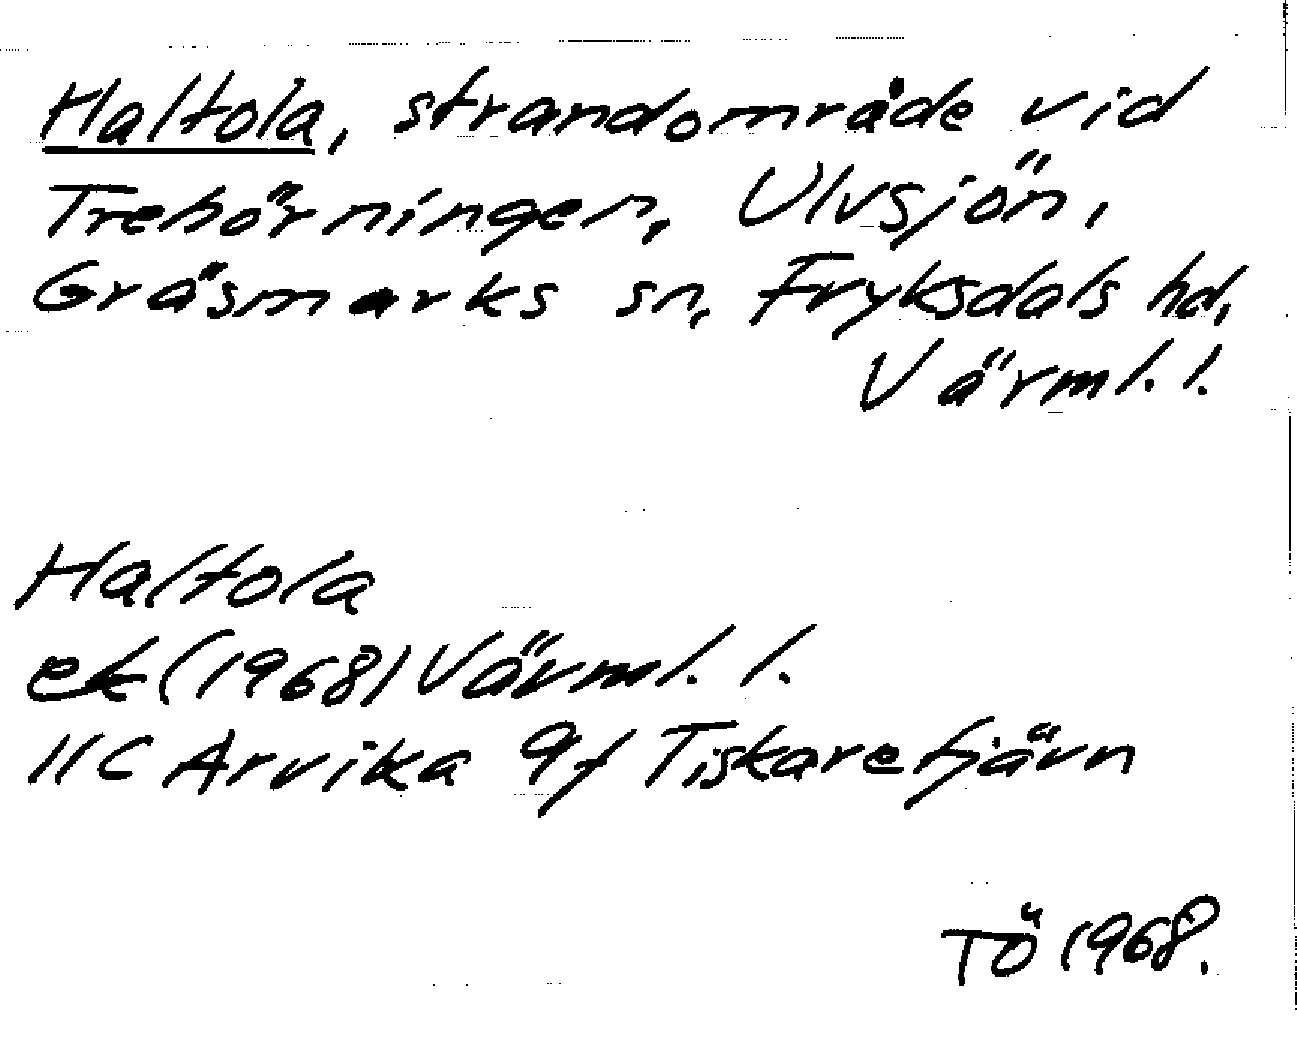 Haltola, strandområde vid
Trehörningen, Ulvsjön,
Gräsmarks sn, Fryksdals hd,
Värml. l.
Haltola
ek (1968) Värml. l.
11C Arvika 9f Tiskaretjärn
TÖ 1968.